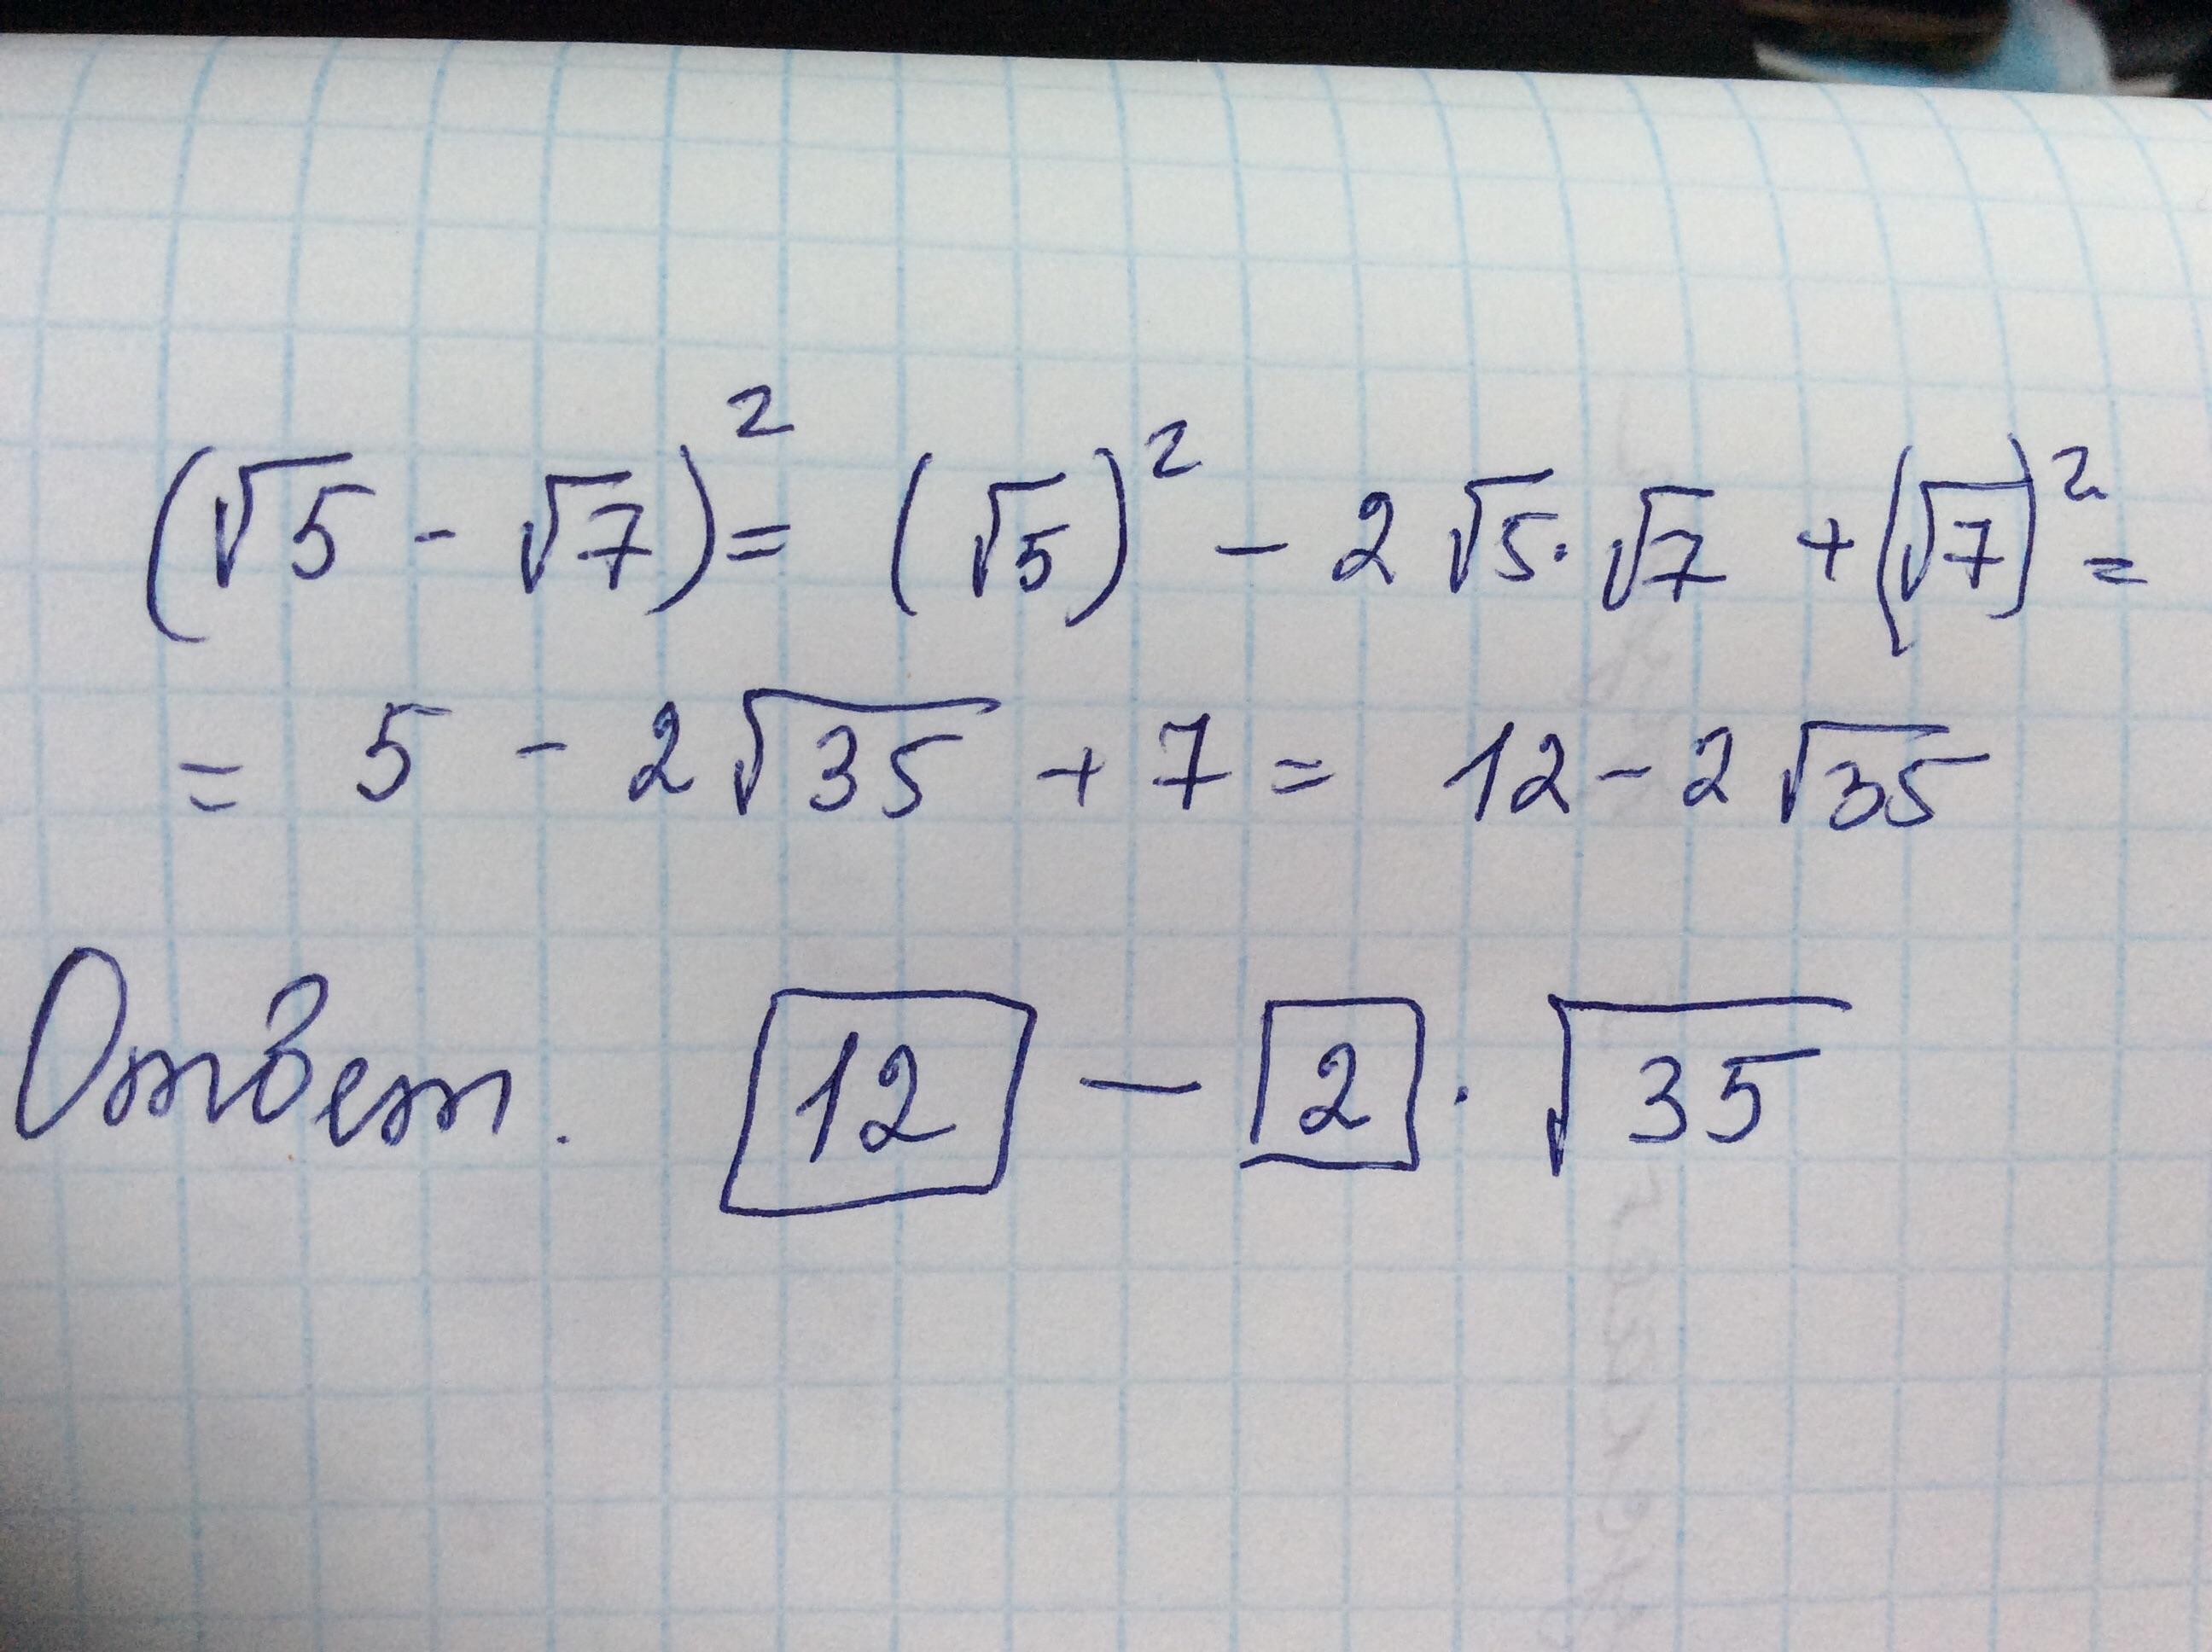 (√5 - √7)² = (√5)² - 2√5·√7 + (√7)² =
= 5 - 2√35 + 7 = 12 - 2√35
Ответ. 12 - 2 · √35